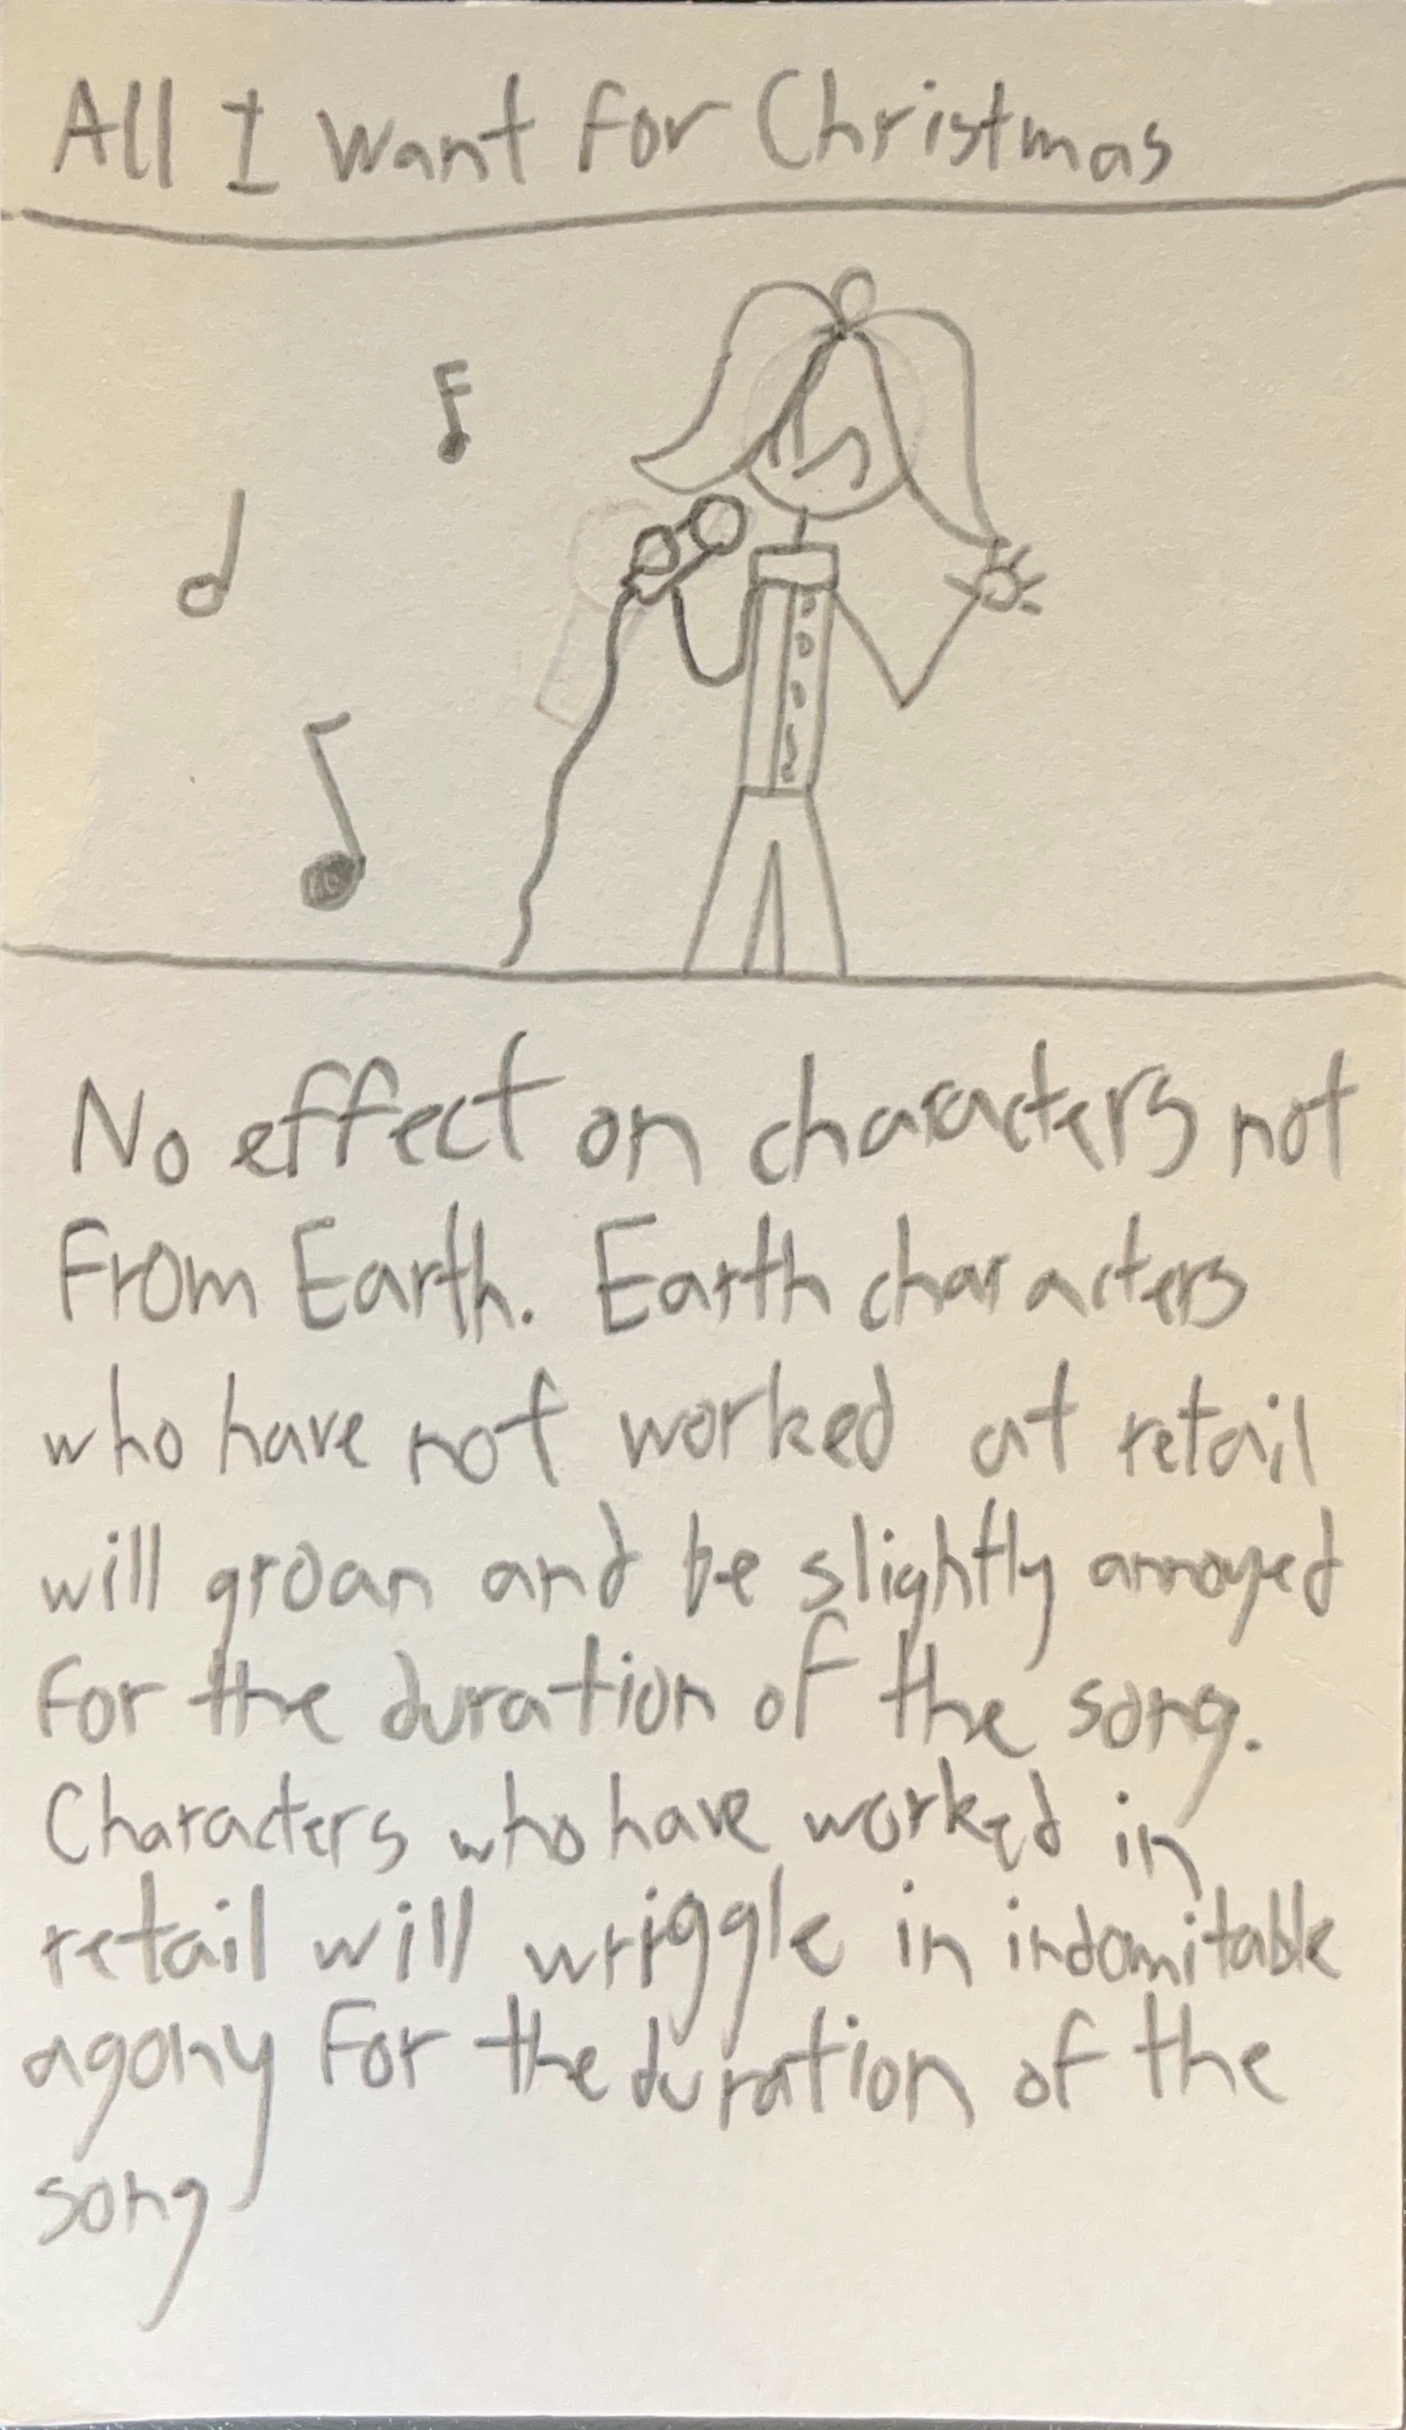 All I want for Christmas
No effect on characters not
from Earth. Earth characters
who have not worked at retail
will groan and be slightly annoyed
for the duration of the song.
Characters who have worked in
retail will wriggle in indomitable
agony for the duration of the
song